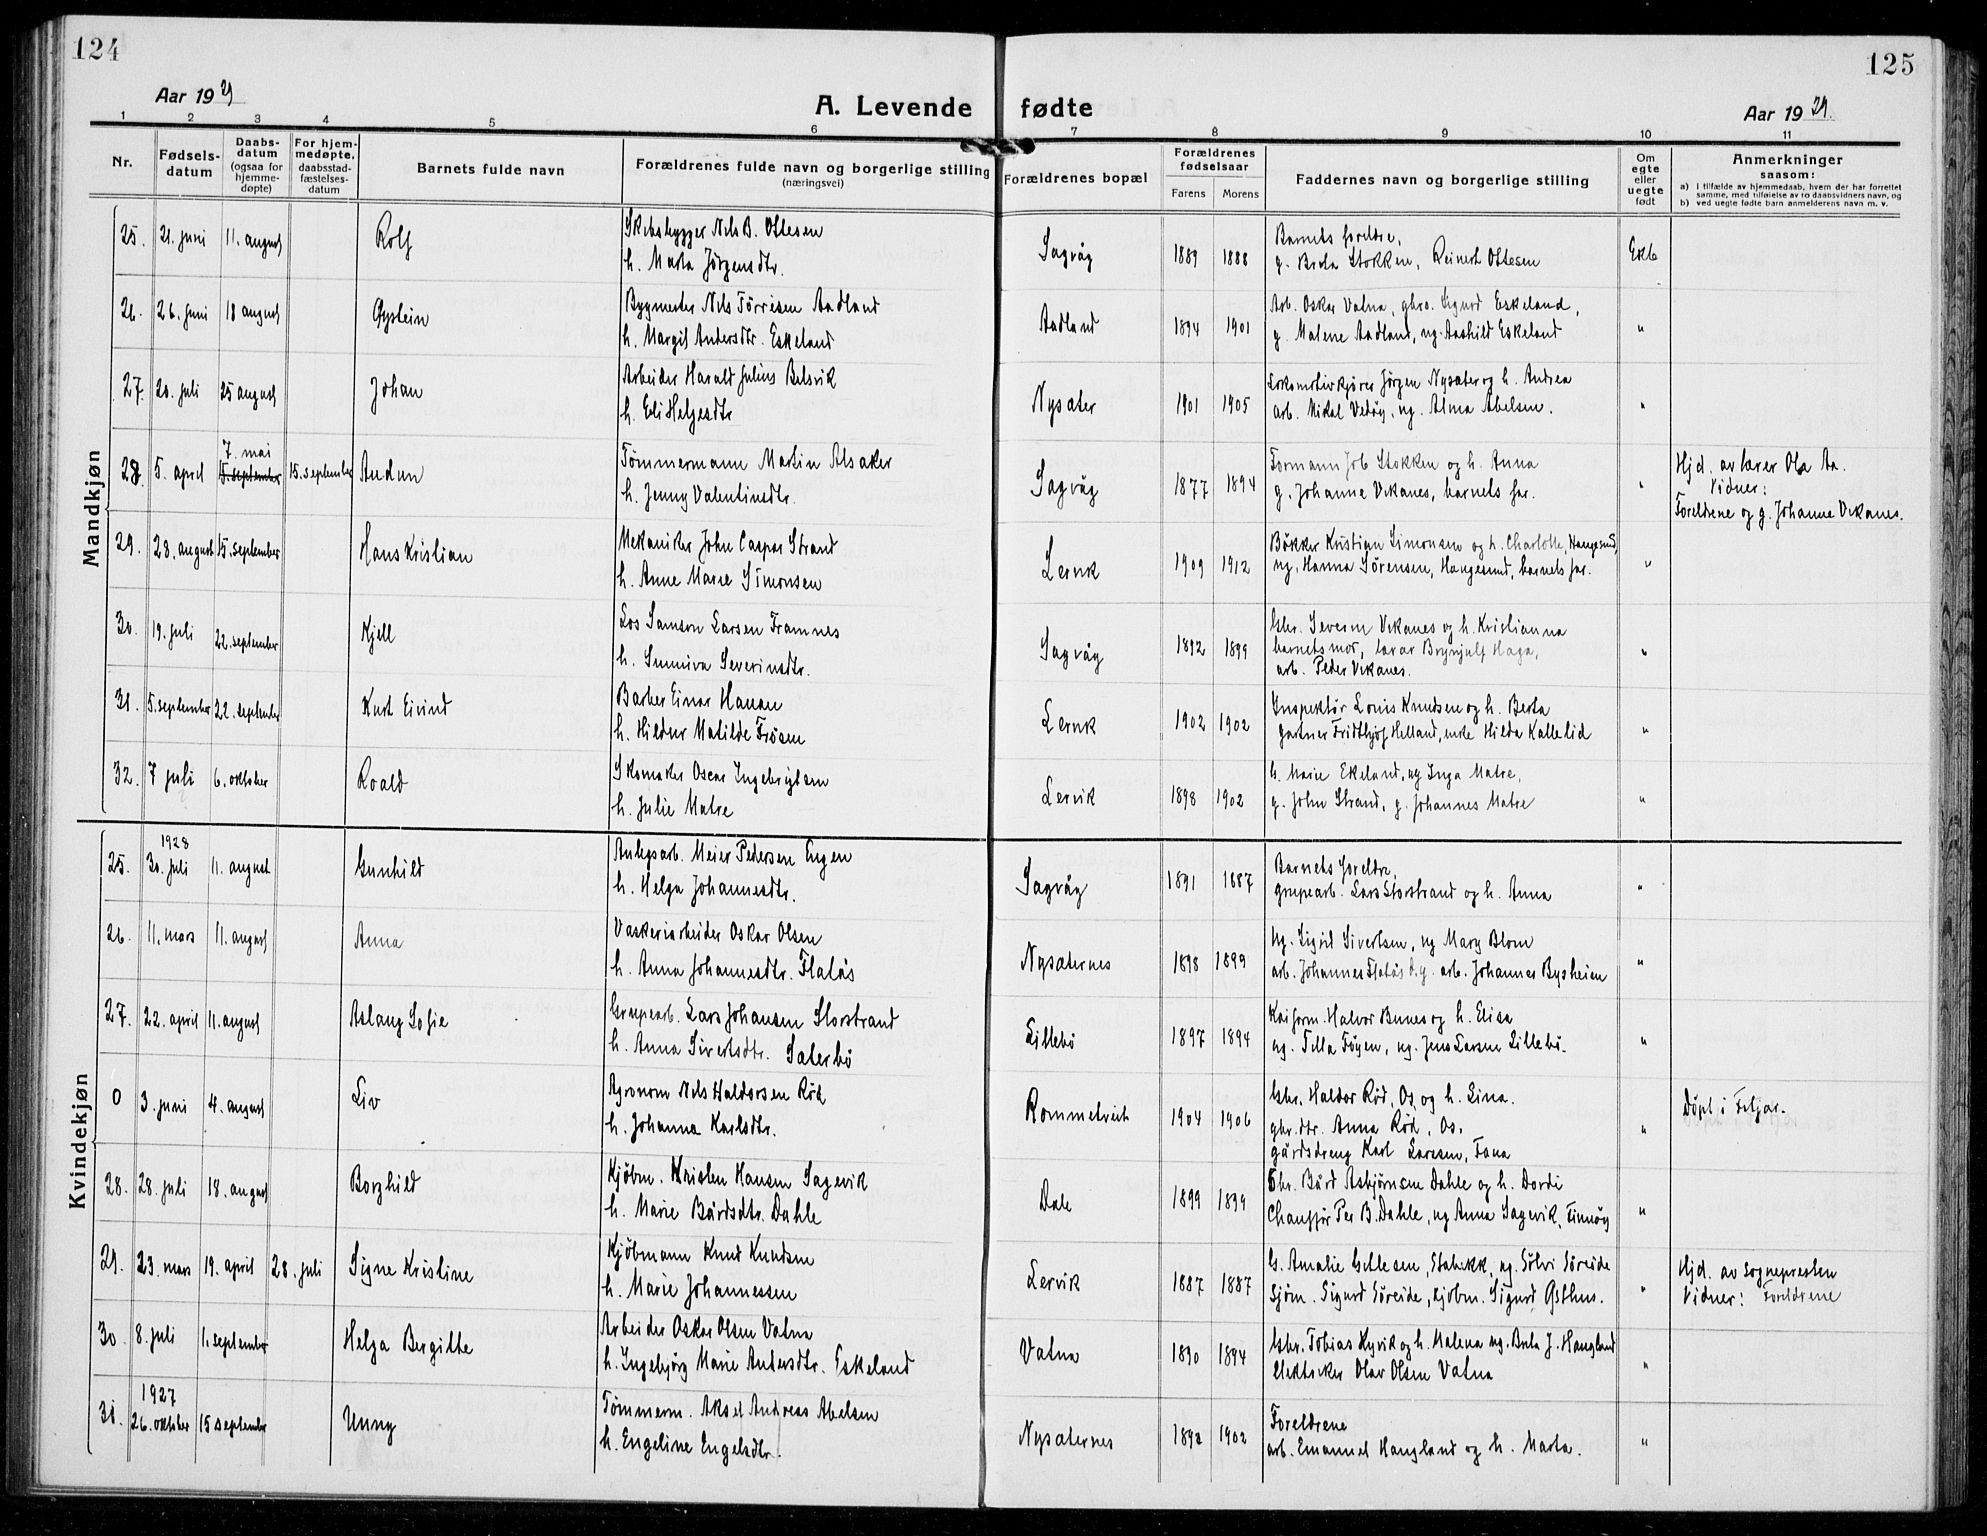 124
125
Aar 1929
A. Levende fødte
Aar 1929.
1 2 3 4 5 6 7 8 9 10 11
Nr.
Fødsels-
datum
Daabs-
datum
(ogsaa for
hjemme-
døpte)
For hjem-
medøpte,
daabsstad-
fæstelses-
datum
Barnets fulde navn
Forældrenes fulde navn og borgerlige stilling
(næringsvei)
Forældrenes bopæl
Forældrenes
fødselsaar
Farens Morens
Faddernes navn og borgerlige stilling
Om
egte
eller
uegte
født
Anmerkninger
saasom:
a) I tilfælde av hjemmedaab, hvem der har forrettet
samme, med tilføielse av to daabsvidners navn, og
b) ved uegte fødte barn anmelderens navn m. v.
Mandkjøn
25. 21. juni 11. august Rolf Skibsbygger Nils B. Ottesen Sagvåg 1889 1888 Barnets foreldre, Ekte
h. Marta Jörgensdtr. g. Berta Stokken, Reinert Ottesen
26. 26. juni 18 august Øystein Bygmester Nils Törrisen Aadland Aadland 1894 1901 Arb. Oskar Vatna, gbrs. Sigurd Eskeland, "
h. Margit Andersdtr. Eskeland g. Malene Aadland, ug. Aashild Eskeland
27. 20. juli 25 august Johan Arbeider Harald Julius Belsvik Nysæter 1901 1905 Lokomotivkjører Jörgen Nysæter og h. Andrea "
h. Eli Helgesdtr arb. Mikal Vedöy, ug. Alma Abelsen.
28. 5. april 7. mai 15. september Audun Tömmermann Martin Alsaker Sagvåg 1877 1894 Formann Job Stokken og h. Anna " Hjd. av lærer Ola Aa.
h. Jenny Valentinsdtr. g. Johanna Vikanes, barnets far. Vidner:
Foreldrene og g. Johanne Vikanes.
29. 23. august 15. september Hans Kristian Mekaniker John Caspar Strand Lervik 1909 1912 Bökker Kristian Simonsen og h. Charlotte, Haugesund, "
h. Anne Marie Simonsen ug. Hanna Sörensen, Haugesund, barnets far.
30. 19. juli 22. september Kjell Los Samson Larsen Framnes Sagvåg 1892 1899 Gbr. Severin Vikanes og h. Kristianna "
h. Sunniva Severinsdtr. barnets mor, lærer Brynjulf Haga,
arb. Peder Vikanes.
31. 5. september 22. september Kurt Eivind Barber Einar Hauan Lervik 1902 1902 Inspektör Louis Knudsen og h. Berta "
h. Hildur Matilde Frösen gartner Fridthjof Helland, enke Hilda Kallelid
32. 7 juli 6. oktober Roald Skomaker Oscar Ingebrigtsen Lervik 1898 1902 h. Marie Ekeland, ug Inga Matre, "
h. Julie Matre g. John Strand, g. Johannes Matre
Kvindekjøn
1928
25. 30. juli 11. august Gunhild Anlegsarb. Meier Pedersen Engen Sagvåg 1891 1887 Barnets foreldre, "
h. Helga Johannesdtr. grupearb. Lars Storstrand og h. Anna
26. 11. mars 11. august Anna Vaskeriarbeider Oskar Olsen Nysæternes 1898 1899 Ug. Sigrit Sivertsen, ug Mary Blom "
h. Anna Johannesdtr. Flatås arb. Johannes Flatås d.y. arb. Johannes Bysheien
27. 22. april 11. august Aslaug Sofie Grupearb. Lars Johansen Storstrand Lillebö 1897 1894 Kaiform. Halvor Bunes og h. Elisa "
h. Anna Sivertsdtr. Sæterbö ug. Tilla Föyen, ug. Jens Larsen Lillebö.
0 3. juni 4. august Liv Agronom Nils Haldorsen Röd Rommetveit 1904 1906 Gbr. Haldor Röd, Os og h. Lina. " Döpt i Fitjar.
h. Johanna Karlsdtr. gbr. dtr. Anna Röd, Os,
gårdsdreng Karl Larssen, Fana
28. 28. juli 18. august Borghild Kjöbm. Kristen Hansen Sagevik Dale 1899 1899 Gbr. Bård Asbjörnsen Dahle og h. Dordi "
h. Marie Bårdsdtr. Dahle Chaufför Per B. Dahle, ug Anna Sagevik, Finnöy
29. 23. mars 19. april 28. juli Signe Kristine Kjöbmann Knud Knudsen Lervik 1887 1887 G. Amalie Gitlesen, Stabekk, ug. Sölvi Söreide " Hjd. av sognepresten
h. Marie Johannessen Sjöm. Sigurd Söreide, kjöbm. Sigurd Østhus. Vidner: Foreldrene
30 8. juli 1. september Helga Bergitte Arbeider Oskar Olsen Vatna Vatna 1890 1894 Gbr. Tobias Kyvik og h. Malena ug. Berta J. Haugland "
h. Ingebjörg Marie Andersdtr. Eskeland Elektriker Olav Olsen Vatna
1927
31. 26. oktober 15 september Unny Tömmerm. Aksel Andreas Abelsen Nysæternes 1892 1902 Foreldrene "
h. Engeline Engelsdtr. arb. Emanuel Haugland og h. Marta.